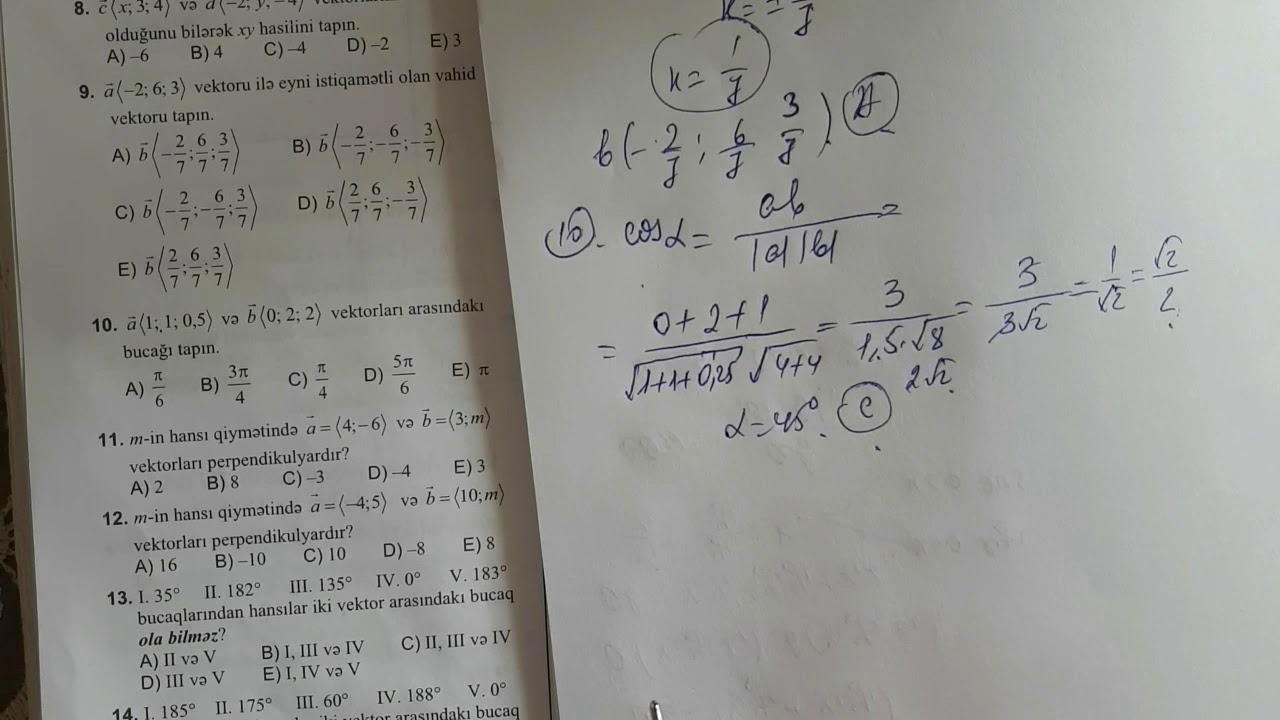 8. c⃗⟨x; 3; 4⟩ və d⃗⟨−2; y; −4⟩
olduğunu bilərək xy hasilini tapın.
A) –6 B) 4 C) –4 D) –2 E) 3
9. a⃗⟨−2; 6; 3⟩ vektoru ilə eyni istiqamətli olan vahid
vektoru tapın.
A) b⃗⟨−2/7; 6/7; 3/7⟩ B) b⃗⟨−2/7; −6/7; −3/7⟩
C) b⃗⟨−2/7; −6/7; 3/7⟩ D) b⃗⟨2/7; 6/7; −3/7⟩
E) b⃗⟨2/7; 6/7; 3/7⟩
10. a⃗⟨1; 1; 0,5⟩ və b⃗⟨0; 2; 2⟩ vektorları arasındakı
bucağı tapın.
A) π/6 B) 3π/4 C) π/4 D) 5π/6 E) π
11. m-in hansı qiymətində a⃗ = ⟨4; −6⟩ və b⃗ = ⟨3; m⟩
vektorları perpendikulyardır?
A) 2 B) 8 C) –3 D) –4 E) 3
12. m-in hansı qiymətində a⃗ = ⟨−4; 5⟩ və b⃗ = ⟨10; m⟩
vektorları perpendikulyardır?
A) 16 B) –10 C) 10 D) –8 E) 8
13. I. 35° II. 182° III. 135° IV. 0° V. 183°
bucaqlarından hansılar iki vektor arasındakı bucaq
ola bilməz?
A) II və V B) I, III və IV C) II, III və IV
D) III və V E) I, IV və V
14. I. 185° II. 175° III. 60° IV. 188° V. 0°
iki vektor arasındakı bucaq
k = 1/7
b(−2/7; 6/7 3/7) A
10. cosα = ab/|a||b| =
= 0+2+1/√1+1+0,25 √4+4 = 3/1,5·√8 = 3/3√2 = 1/√2 = √2/2
2√2
α = 45°. C